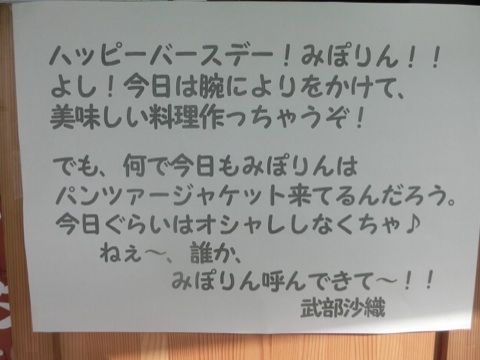 ハッピーバースデー！みぽりん！！
よし！今日は腕によりをかけて、
美味しい料理作っちゃうぞ！
でも、何で今日もみぽりんは
パンツァージャケット来てるんだろう。
今日ぐらいはオシャレしなくちゃ♪
ねぇ～、誰か、
みぽりん呼んできて～！！
武部沙織